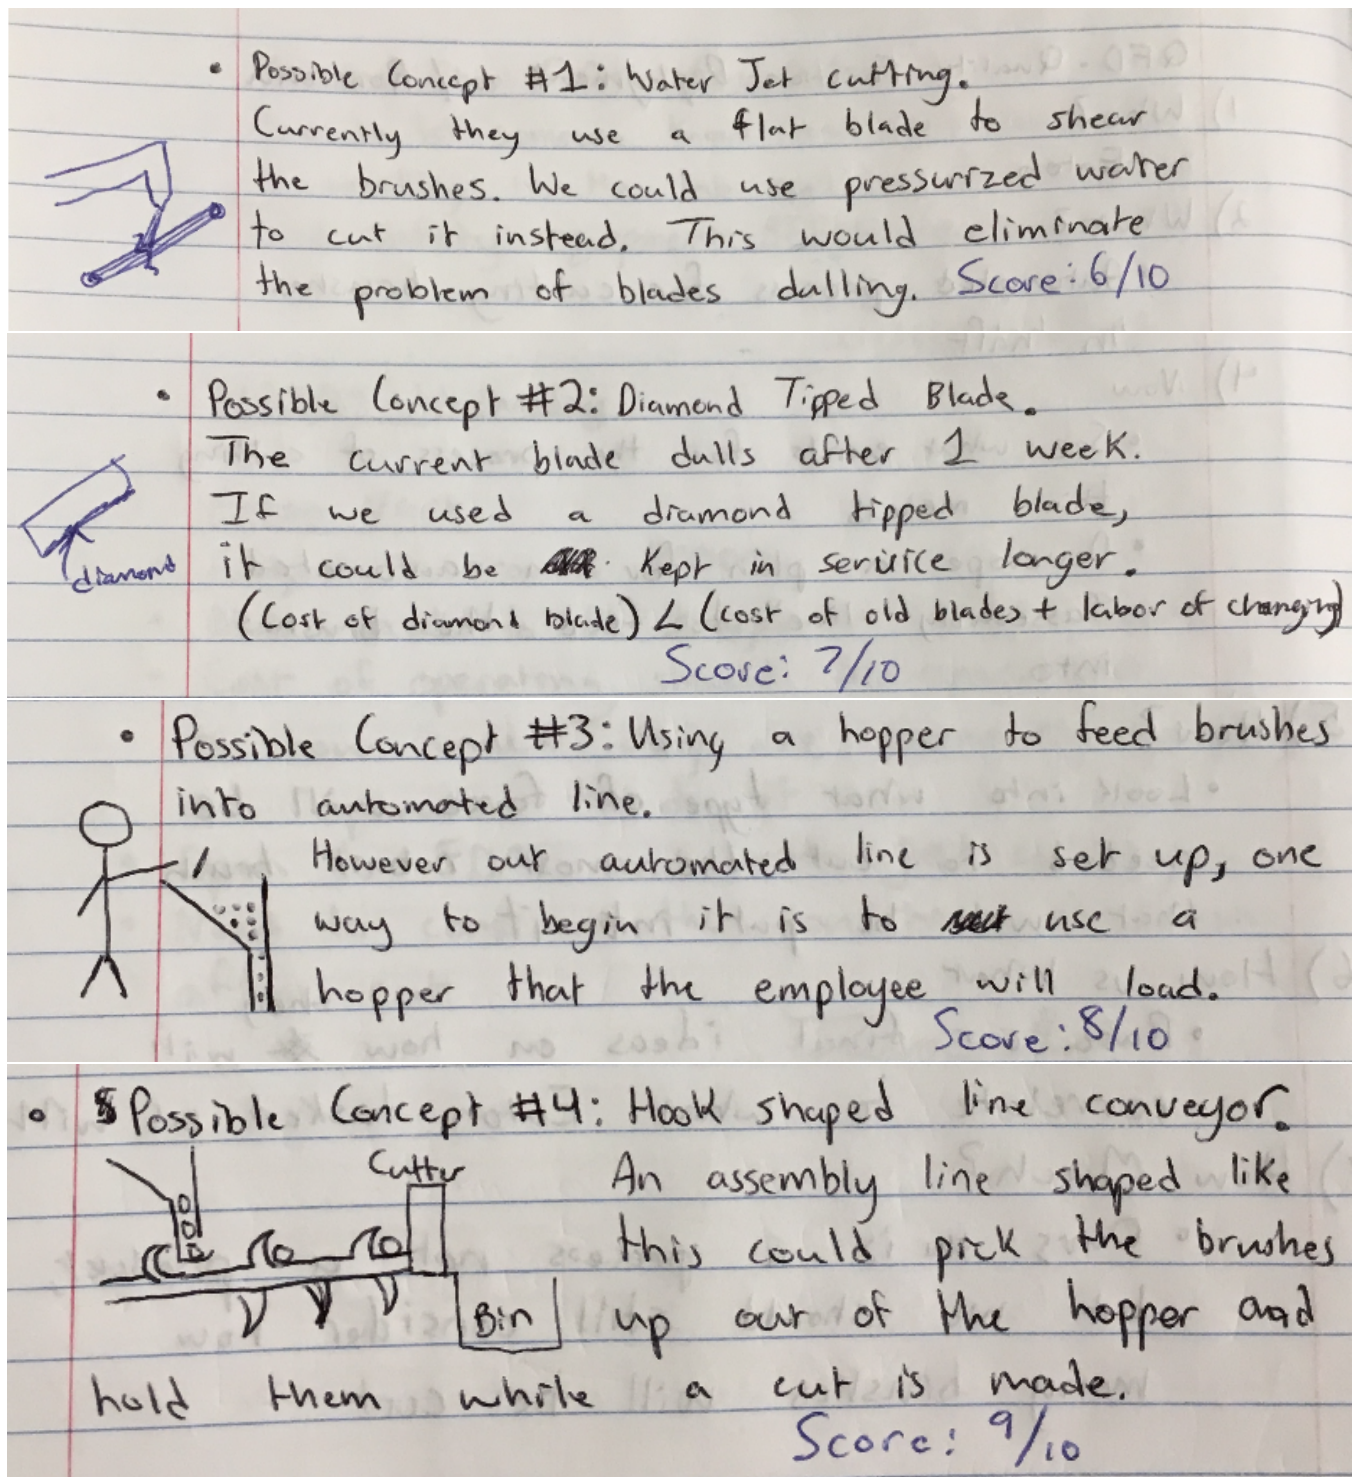 • Possible Concept #1: Water Jet cutting.
Currently they use a flat blade to shear
the brushes. We could use pressurized water
to cut it instead. This would eliminate
the problem of blades dulling. Score: 6/10
• Possible Concept #2: Diamond Tipped Blade.
The current blade dulls after 1 week.
If we used a diamond tipped blade,
diamond
it could be Kept in service longer.
(Cost of diamond blade) < (cost of old blades + labor of changing)
Score: 7/10
• Possible Concept #3: Using a hopper to feed brushes
into automated line.
However our automated line is set up, one
way to begin it is to use a
hopper that the employee will load.
Score: 8/10
• Possible Concept #4: Hook shaped line conveyor.
Cutter
An assembly line shaped like
this could pick the brushes
Bin
up out of the hopper and
hold them while a cut is made.
Score: 9/10